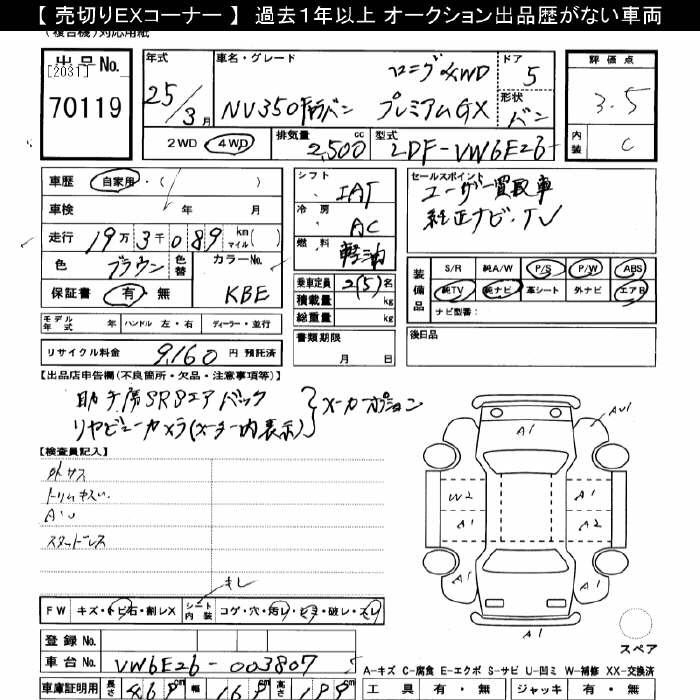 【 売切りEXコーナー 】 過去1年以上 オークション出品歴がない車両
(複合機)対応用紙
出品No.
[2031]
70119
年式
25/3月
車名・グレード
ロング 4WD
NV350 バン プレミアムGX
ドア
5
形状
バン
評価点
3.5
内装
C
2WD 4WD
排気量
2,500 cc
型式
LDF-VW6E26
車歴
自家用・( )
車検
年 月
走行
19万3千089 km マイル( )
色
ブラウン
色替
カラーNo.
KBE
保証書
有・無
シフト
IAT
冷房
AC
燃料
軽油
乗車定員
2(5)名
積載量
kg
総重量
kg
書類期限
月 日
セールスポイント
ユーザー買取車
純正ナビ・TV
装備品
S/R 純A/W P/S P/W ABS
純TV 純ナビ 革シート 外ナビ エアB
ナビ型番:
後日品
モデル年式 年
ハンドル 左・右
ディーラー・並行
リサイクル料金
9,160 円 預託済
【出品店申告欄(不良箇所・欠品・注意事項等)】
助手席SRSエアバック
リヤビューカメラ(メーター内表示)
メーカーオプション
【検査員記入】
外 キズ
トリムキズ
スタッドレス
キレ
FW
キズ・トビ石・割レX
シート内装
コゲ・穴・汚レ・シミ・破レ・スレ
登録No.
車台No.
VW6E26-003807
車庫証明用
長さ 469cm
幅 169cm
高さ 199cm
A1
AU1
W2
A1
A1
A2
A1
A1
スペア
A-キズ C-腐食 E-エクボ S-サビ U-凹ミ W-補修 XX-交換済
工具 有・無
ジャッキ 有・無